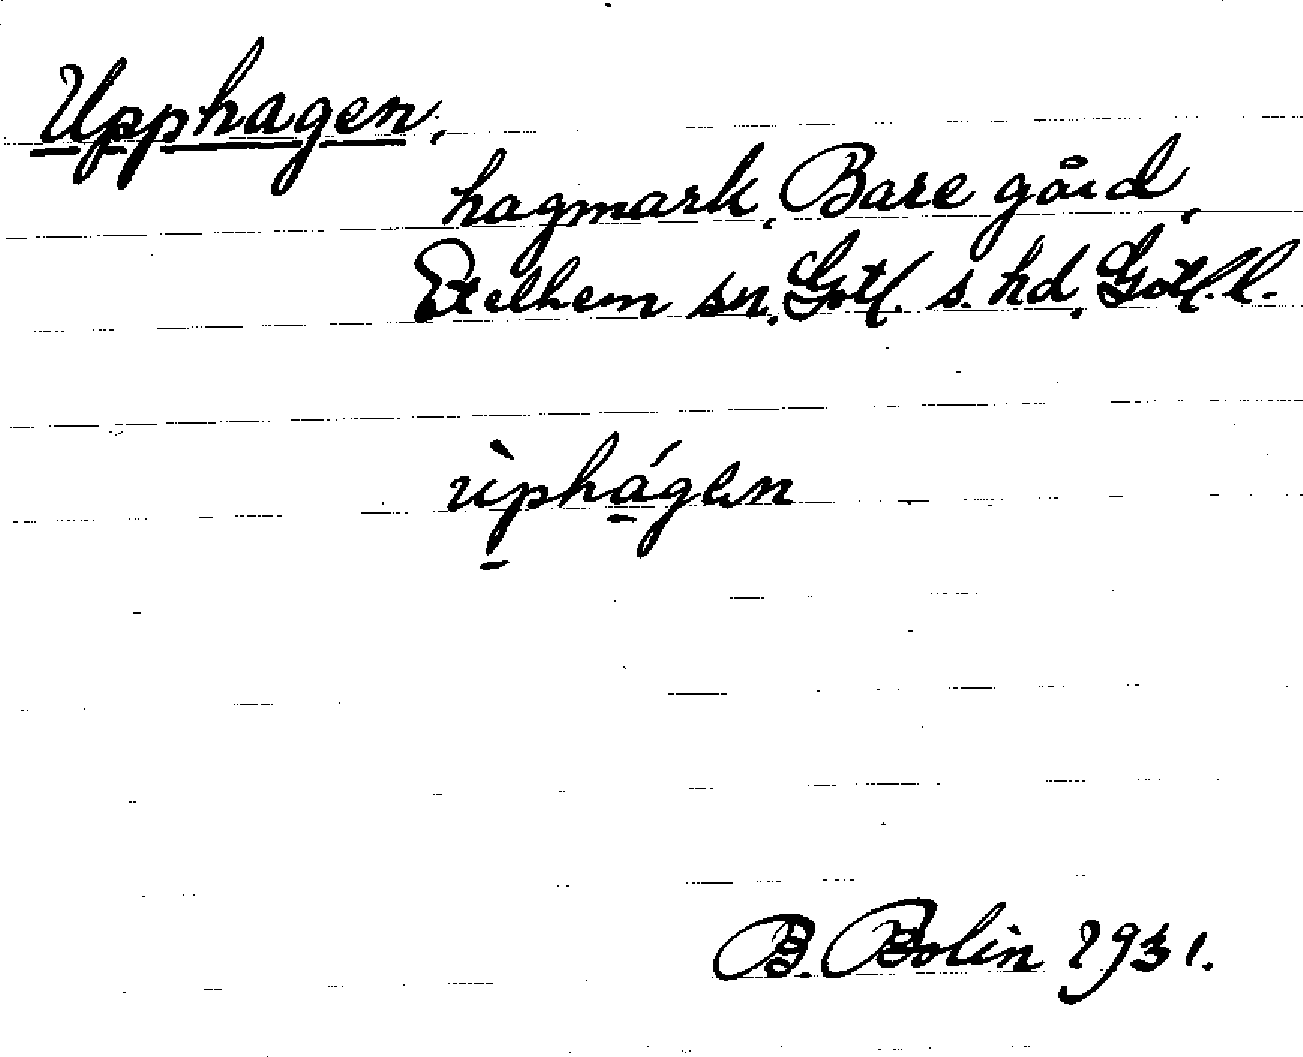 Upphagen,
hagmark, Bare gård,
Etelhem sn, Gotl. s. hd, Gotl. l.
ùp̱há̱gen
B. Bolin 1931.